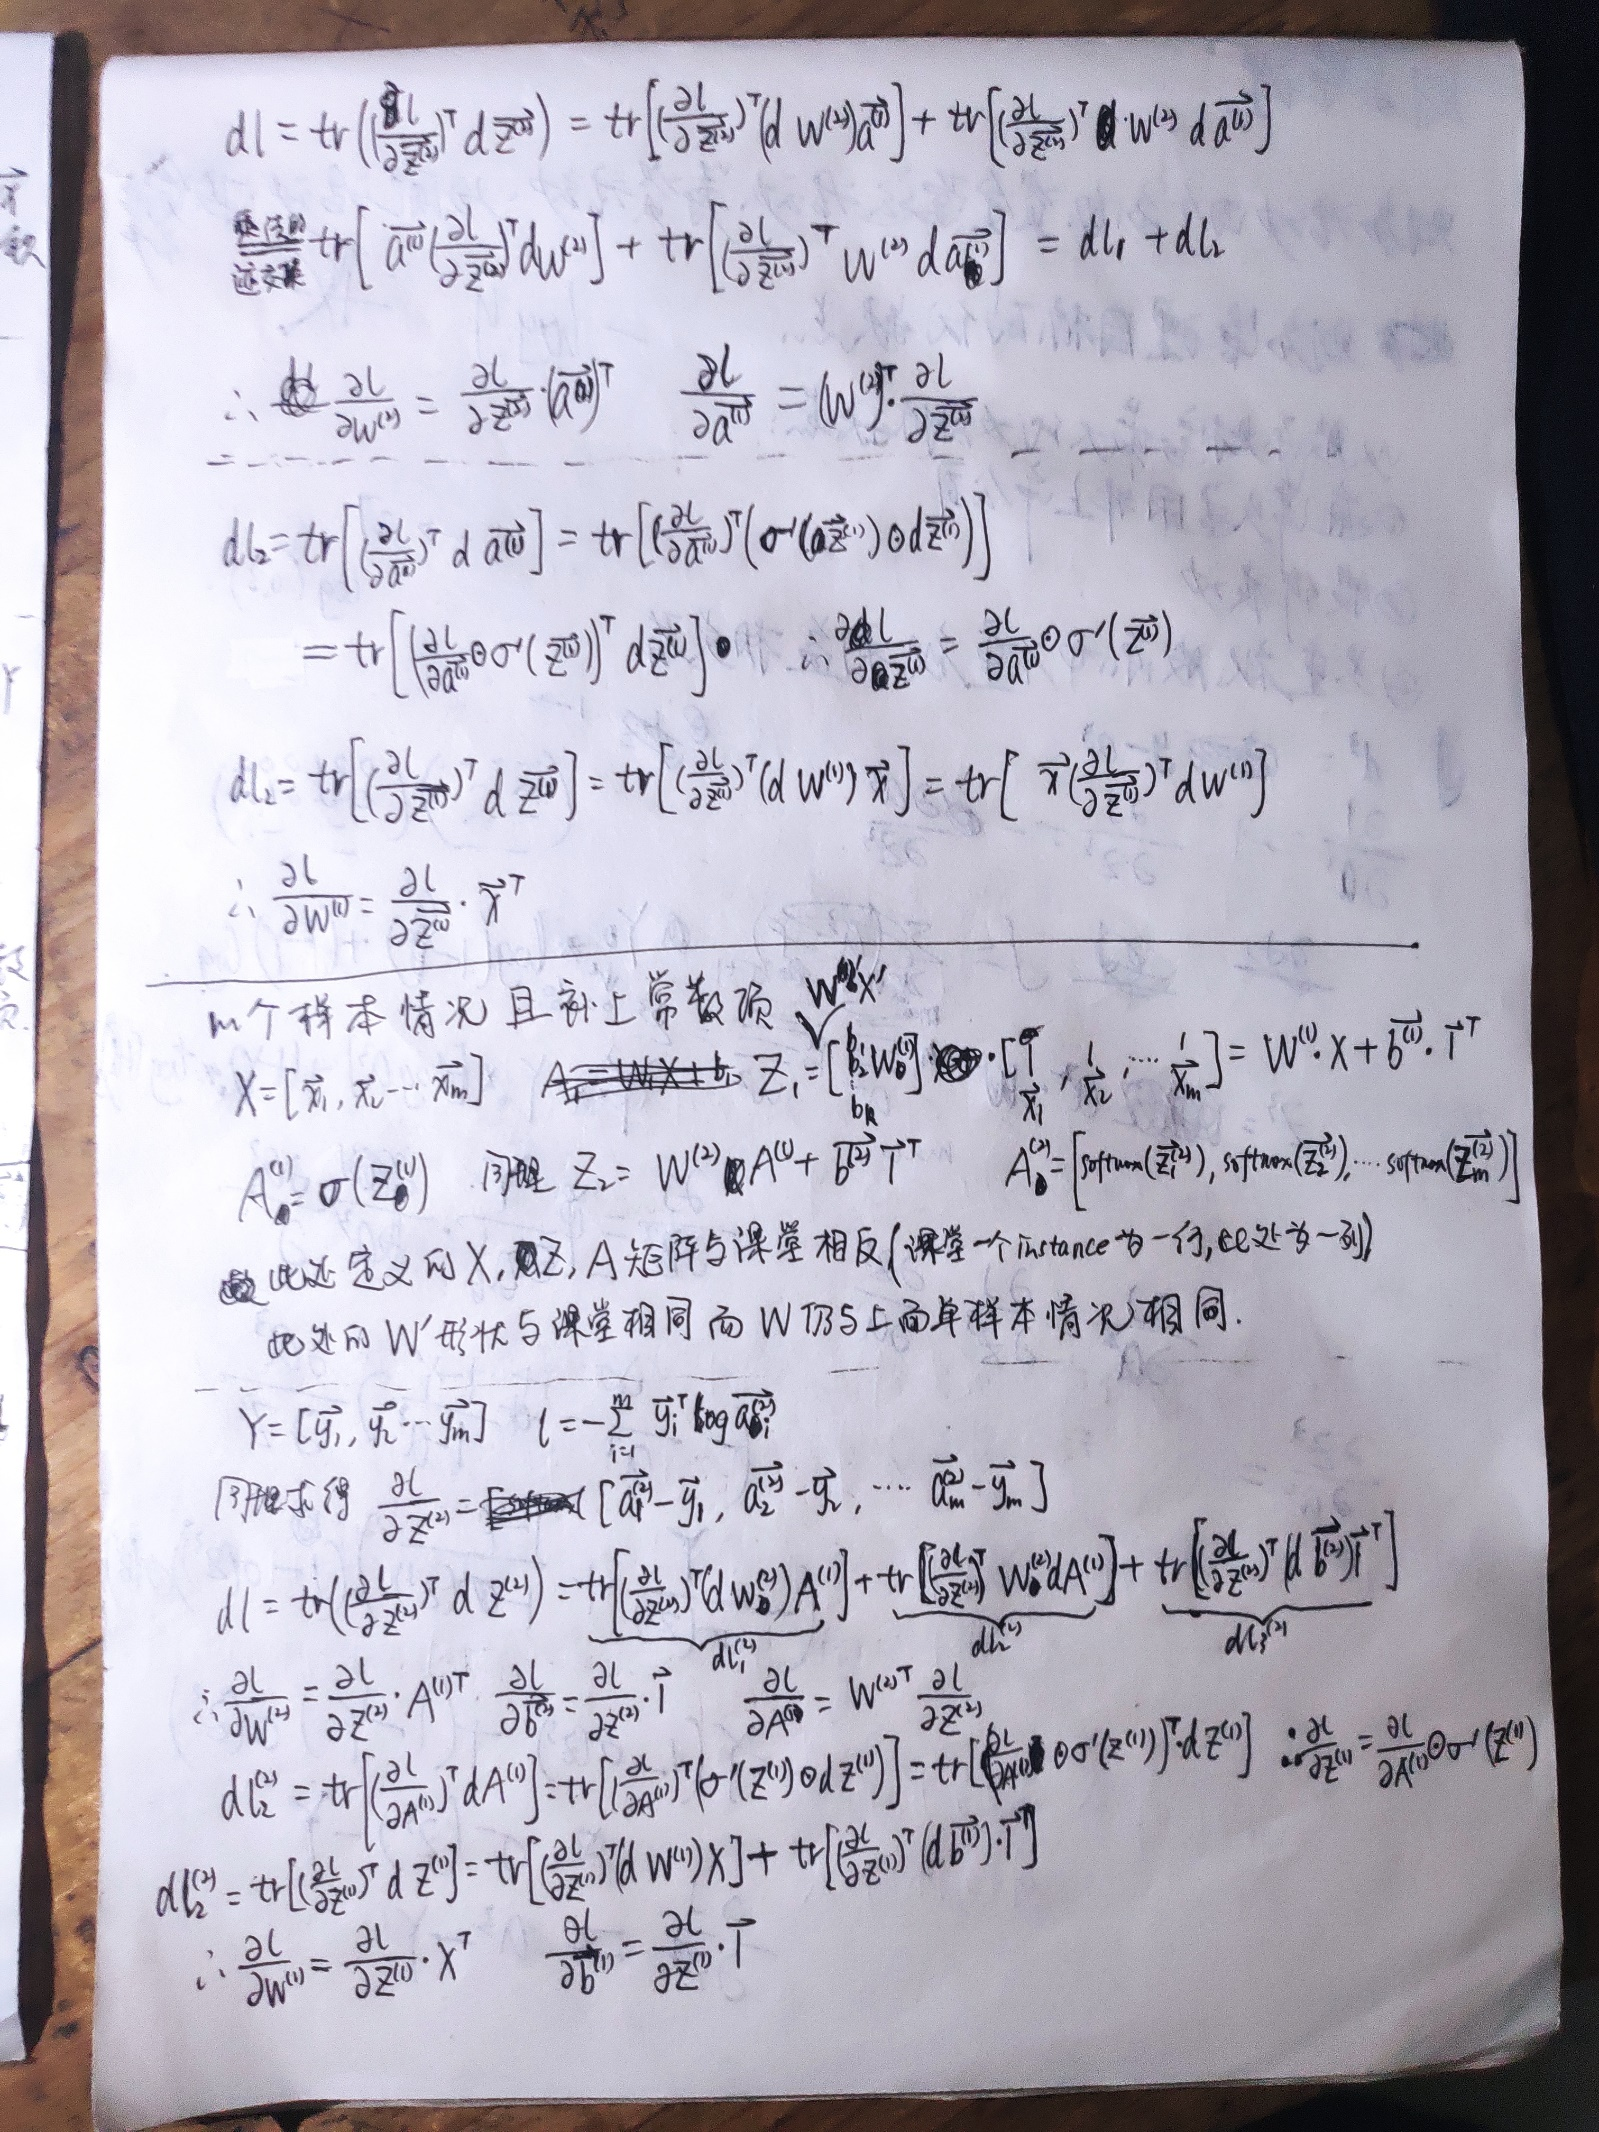 dl = tr((∂l/∂z⃗⁽²⁾)ᵀ dz⃗⁽²⁾) = tr[(∂l/∂z⃗⁽²⁾)ᵀ(dW⁽²⁾)a⃗⁽¹⁾] + tr[(∂l/∂z⃗⁽²⁾)ᵀ·W⁽²⁾ da⃗⁽¹⁾]
迹交换 tr[a⃗⁽¹⁾(∂l/∂z⃗⁽²⁾)ᵀdW⁽²⁾] + tr[(∂l/∂z⃗⁽²⁾)ᵀ W⁽²⁾ da⃗⁽¹⁾] = dl₁ + dl₂
∴ ∂l/∂W⁽²⁾ = ∂l/∂z⃗⁽²⁾·(a⃗⁽¹⁾)ᵀ ∂l/∂a⃗⁽¹⁾ = (W⁽²⁾)ᵀ·∂l/∂z⃗⁽²⁾
dl₂ = tr[(∂l/∂a⃗⁽¹⁾)ᵀ da⃗⁽¹⁾] = tr[(∂l/∂a⃗⁽¹⁾)ᵀ(σ'(z⃗⁽¹⁾)⊙dz⃗⁽¹⁾)]
= tr[(∂l/∂a⃗⁽¹⁾⊙σ'(z⃗⁽¹⁾))ᵀ dz⃗⁽¹⁾] ∴ ∂l/∂z⃗⁽¹⁾ = ∂l/∂a⃗⁽¹⁾⊙σ'(z⃗⁽¹⁾)
dl₂ = tr[(∂l/∂z⃗⁽¹⁾)ᵀ dz⃗⁽¹⁾] = tr[(∂l/∂z⃗⁽¹⁾)ᵀ(dW⁽¹⁾)x⃗] = tr[x⃗(∂l/∂z⃗⁽¹⁾)ᵀdW⁽¹⁾]
∴ ∂l/∂W⁽¹⁾ = ∂l/∂z⃗⁽¹⁾·x⃗ᵀ
m个样本情况且补上常数项 W⁽¹⁾'X'
X = [x⃗₁, x⃗₂ ··· x⃗m] Z₁ = [b₁ b₂ ⋮ bₖ W⁽¹⁾]·[1 x⃗₁, 1 x⃗₂, ···· 1 x⃗m] = W⁽¹⁾·X + b⃗⁽¹⁾·1⃗ᵀ
A⁽¹⁾ = σ(Z⁽¹⁾) 同理 Z₂ = W⁽²⁾A⁽¹⁾ + b⃗⁽²⁾1⃗ᵀ A⁽²⁾ = [softmax(z⃗₁⁽²⁾), softmax(z⃗₂⁽²⁾), ···· softmax(z⃗m⁽²⁾)]
此处定义的X, Z, A矩阵与课堂相反(课堂一个instance为一行,此处为一列)
此处的W'形状与课堂相同而W仍与上面单样本情况相同.
Y = [y⃗₁, y⃗₂ ··· y⃗m] l = -∑ᵢ₌₁ᵐ y⃗ᵢᵀ log a⃗ᵢ⁽²⁾
同理求得 ∂l/∂Z⁽²⁾ = [a⃗₁⁽²⁾-y⃗₁, a⃗₂⁽²⁾-y⃗₂, ···· a⃗m⁽²⁾-y⃗m]
dl = tr((∂l/∂Z⁽²⁾)ᵀ dZ⁽²⁾) = tr[(∂l/∂Z⁽²⁾)ᵀ(dW⁽²⁾)A⁽¹⁾] + tr[(∂l/∂Z⁽²⁾)ᵀ W⁽²⁾dA⁽¹⁾] + tr[(∂l/∂Z⁽²⁾)ᵀ(db⃗⁽²⁾)1⃗ᵀ]
dl₁⁽²⁾ dl₂⁽²⁾ dl₃⁽²⁾
∴ ∂l/∂W⁽²⁾ = ∂l/∂Z⁽²⁾·A⁽¹⁾ᵀ ∂l/∂b⃗⁽²⁾ = ∂l/∂Z⁽²⁾·1⃗ ∂l/∂A⁽¹⁾ = W⁽²⁾ᵀ ∂l/∂Z⁽²⁾
dl₂⁽²⁾ = tr[(∂l/∂A⁽¹⁾)ᵀdA⁽¹⁾] = tr[(∂l/∂A⁽¹⁾)ᵀ(σ'(Z⁽¹⁾)⊙dZ⁽¹⁾)] = tr[(∂l/∂A⁽¹⁾⊙σ'(Z⁽¹⁾))ᵀ·dZ⁽¹⁾] ∴ ∂l/∂Z⁽¹⁾ = ∂l/∂A⁽¹⁾⊙σ'(Z⁽¹⁾)
dl₂⁽²⁾ = tr[(∂l/∂Z⁽¹⁾)ᵀ dZ⁽¹⁾] = tr[(∂l/∂Z⁽¹⁾)ᵀ(dW⁽¹⁾)X] + tr[(∂l/∂Z⁽¹⁾)ᵀ(db⃗⁽¹⁾)·1⃗ᵀ]
∴ ∂l/∂W⁽¹⁾ = ∂l/∂Z⁽¹⁾·Xᵀ ∂l/∂b⃗⁽¹⁾ = ∂l/∂Z⁽¹⁾·1⃗